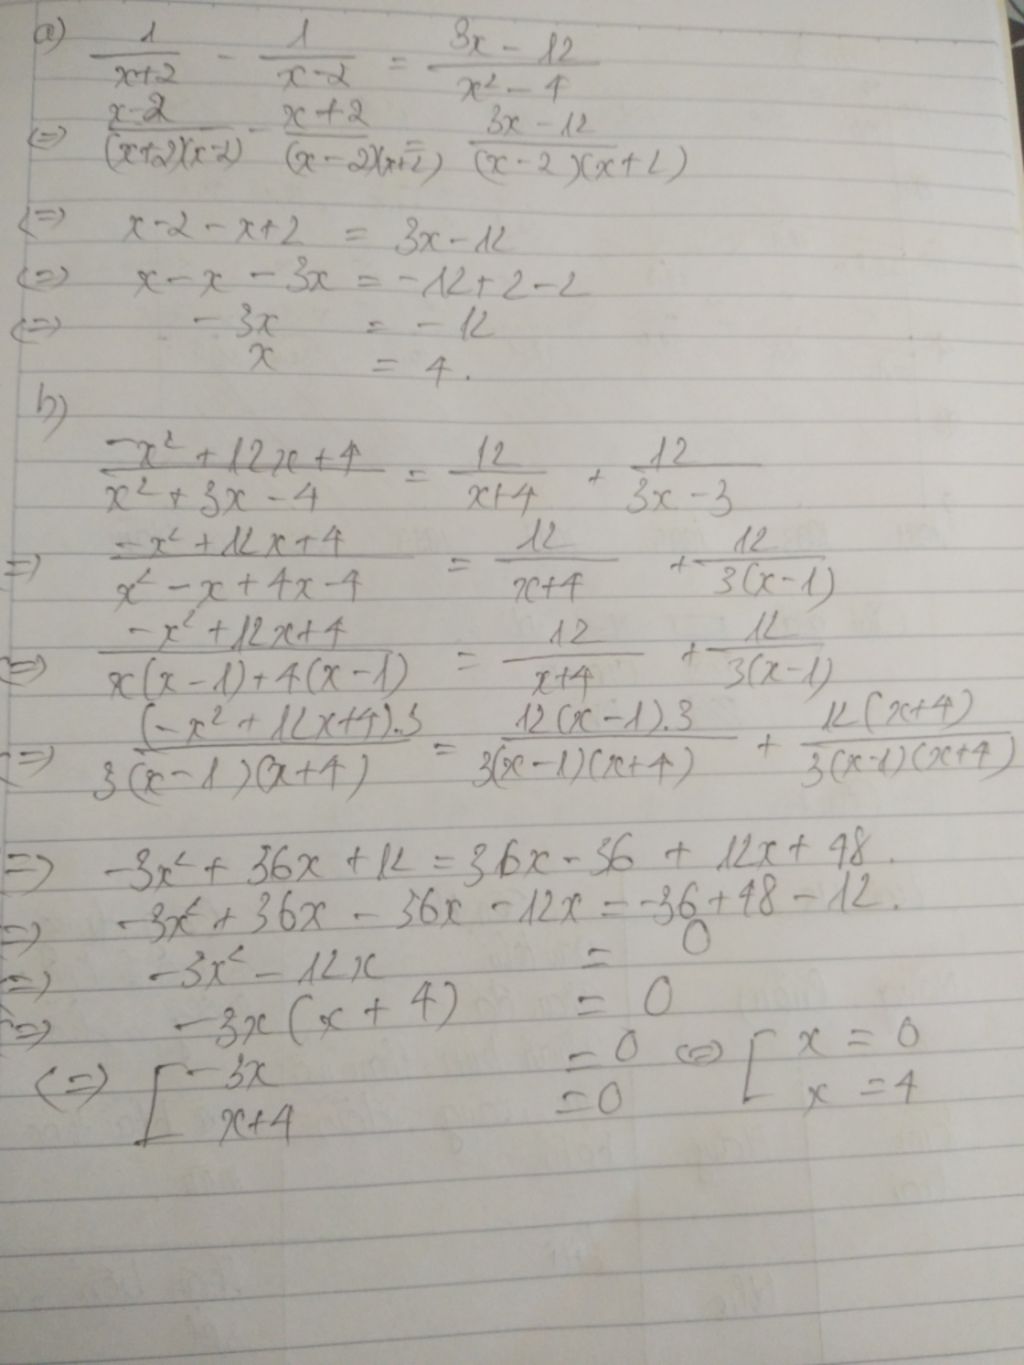 a) 1/(x+2) - 1/(x-2) = (3x - 12)/(x² - 4)
(=) (x-2)/((x+2)(x-2)) - (x+2)/((x-2)(x+2)) = (3x - 12)/((x-2)(x+2))
(=) x-2 - x+2 = 3x - 12
(=) x - x - 3x = -12 + 2 - 2
(=) - 3x = - 12
x = 4.
b)
(-x² + 12x + 4)/(x² + 3x - 4) = 12/(x+4) + 12/(3x - 3)
=) (-x² + 12x + 4)/(x² - x + 4x - 4) = 12/(x+4) + 12/(3(x-1))
(=) (-x² + 12x + 4)/(x(x-1) + 4(x-1)) = 12/(x+4) + 12/(3(x-1))
(=) ((-x² + 12x+4).3)/(3(x-1)(x+4)) = (12(x-1).3)/(3(x-1)(x+4)) + (12(x+4))/(3(x-1)(x+4))
=) -3x² + 36x + 12 = 36x - 36 + 12x + 48.
=) -3x² + 36x - 36x - 12x = -36 + 48 - 12.
=) -3x² - 12x = 0
(=) -3x(x + 4) = 0
(=) [ -3x = 0 (=) [ x = 0
x+4 = 0 x = 4